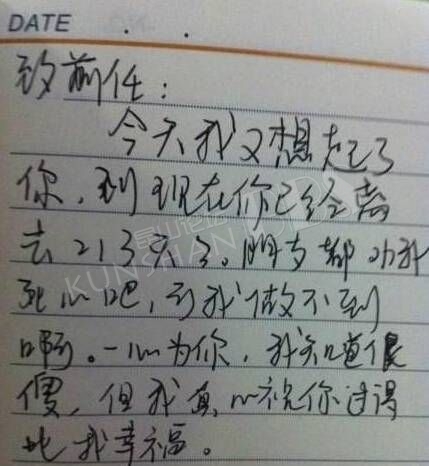 DATE . .
致前任：
今天我又想起了
你，到现在你已经离
去213天了。朋友都劝我
死心吧，可我做不到
啊。一心为你，我知道很
傻，但我真心祝你过得
比我幸福。
KUNSHAN